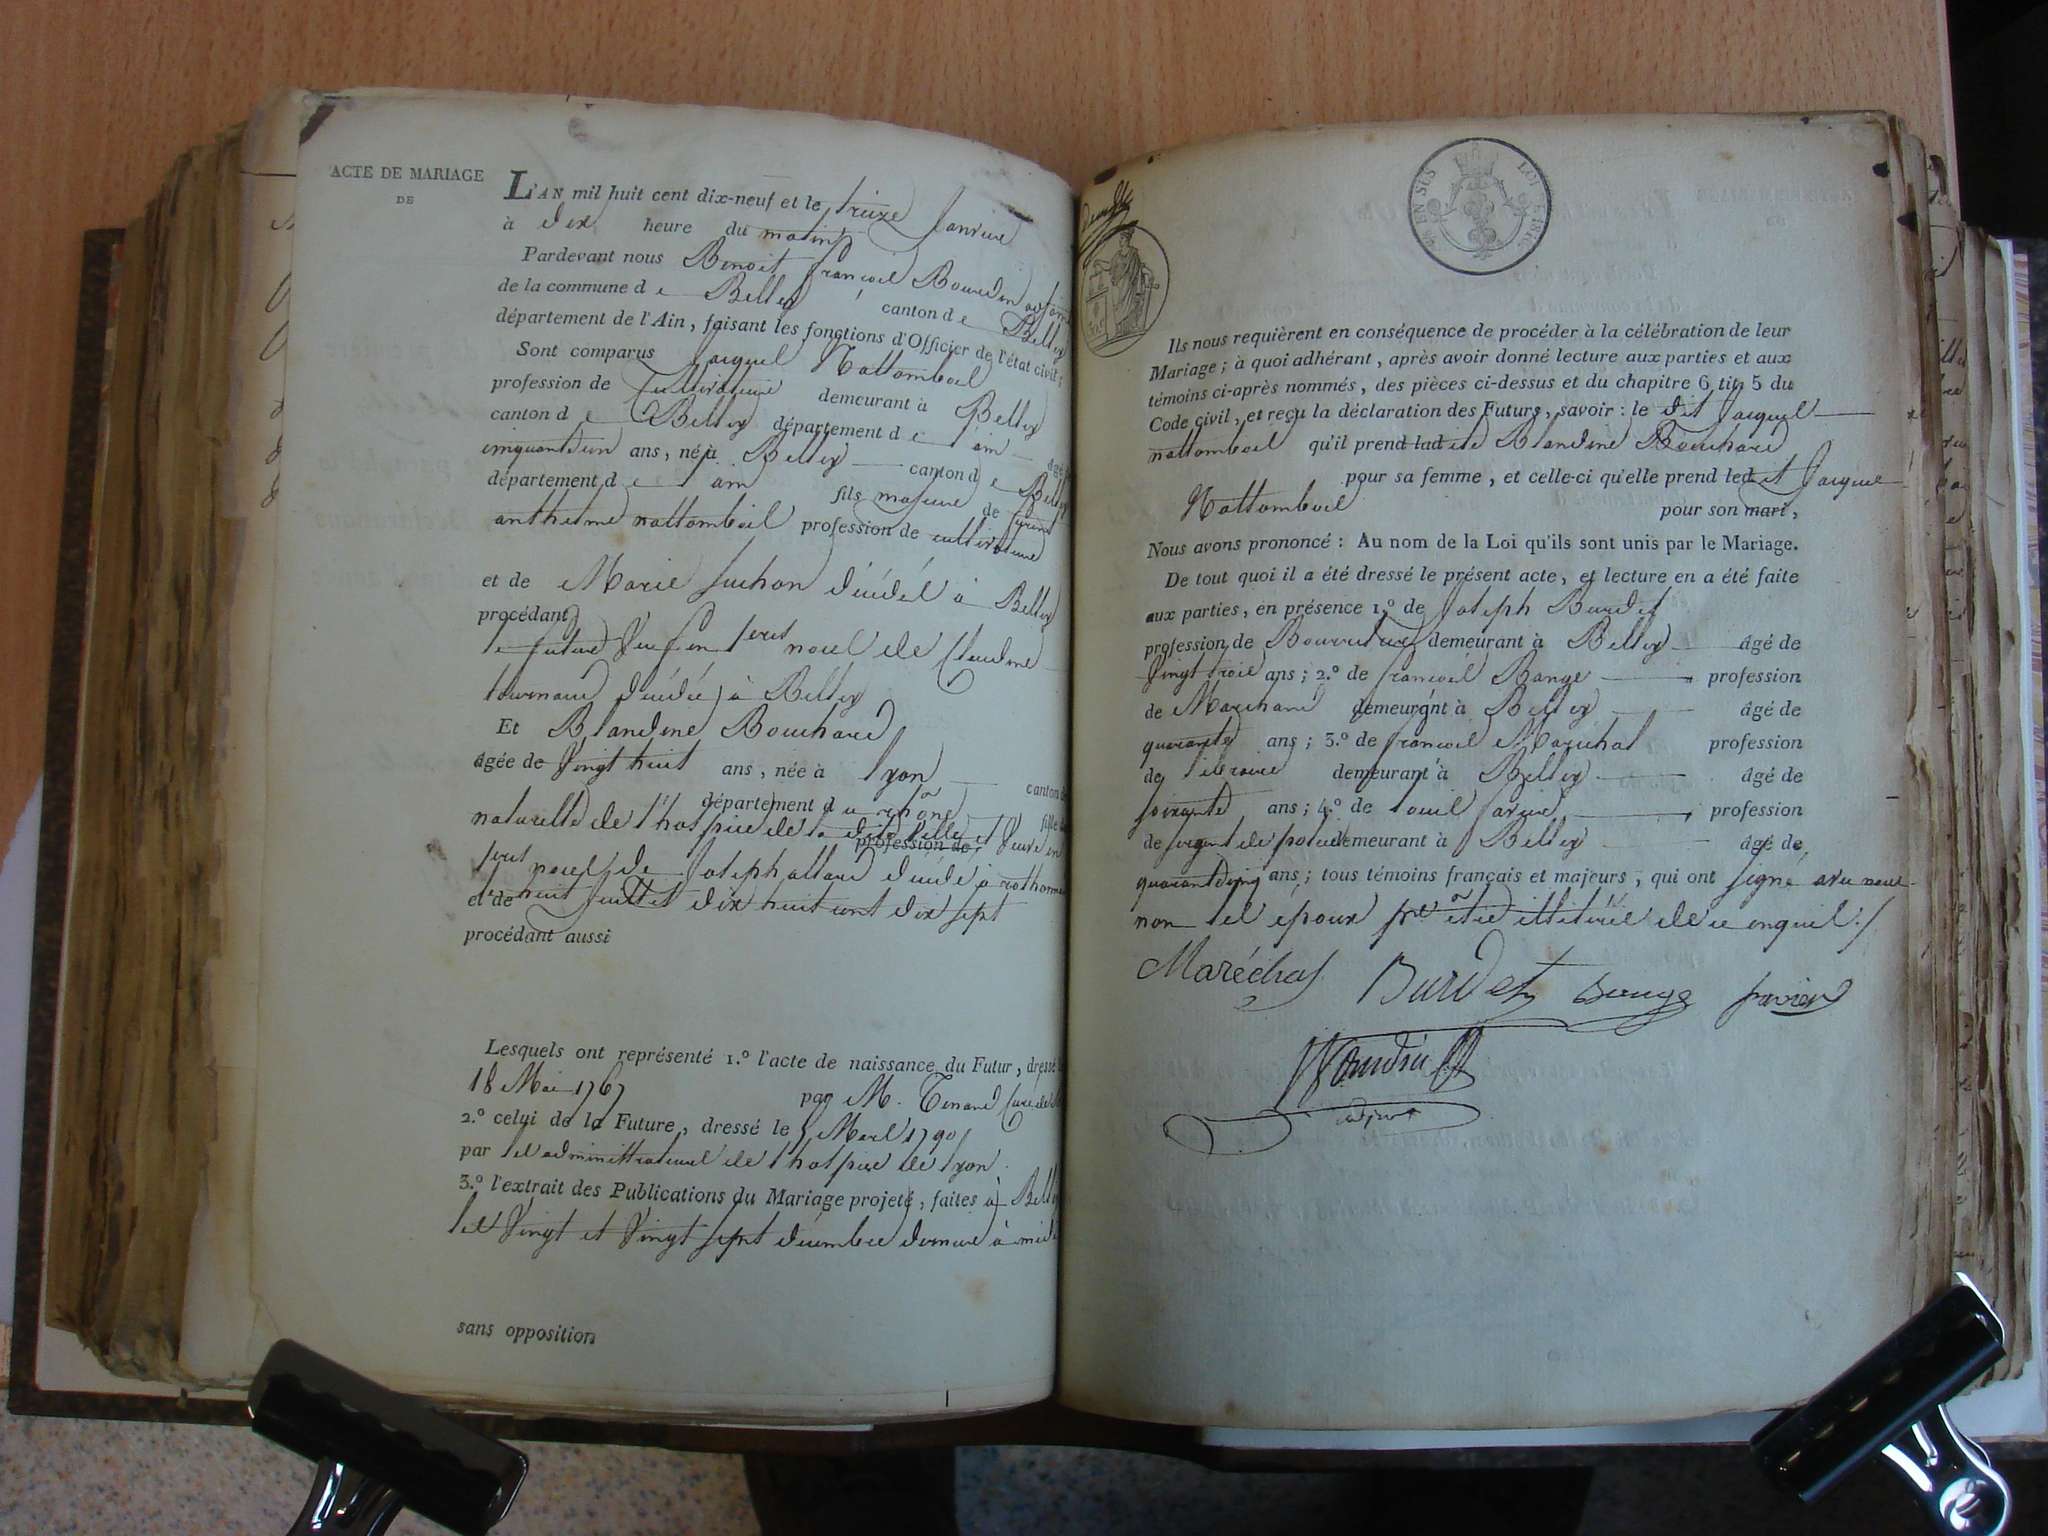 ACTE DE MARIAGE
DE
L'AN mil huit cent dix-neuf et le treize Janvier
à dix heure du matin
Pardevant nous Benoit françois Bourdin adjoint
de la commune de Belley canton de Belley
département de l'Ain, faisant les fonctions d'Officier de l'état civil;
Sont comparus Jacques Nattombois
profession de Cultivateur demeurant à Belley
canton de Belley département de l'ain âgé de
cinquante un ans, né à Belley canton de Belley
département de l'ain fils majeur de
anthelme nattombois profession de cultivateur
et de Marie Juchon décédés à Belley
procédant
le futur Veuf en noces de Claudine
tournand décédée à Belley
Et Blandine Bouchard
âgée de Vingt huit ans, née à Lyon canton
département du rhône fille
naturelle de l'hospice de la dite Ville et Veuve en
profession de
noces de Joseph allard décédé à
et de huit Juillet dix huit cent dix sept
procédant aussi
Lesquels ont représenté 1.º l'acte de naissance du Futur, dressé le
18 Mai 1767 par M. Tenand Curé de
2.º celui de la Future, dressé le 5 Mars 1790
par les administrateurs de l'hospice de Lyon
3.º l'extrait des Publications du Mariage projeté, faites à Belley
les Vingt et Vingt sept décembre dernier à midi
sans opposition
Ils nous requièrent en conséquence de procéder à la célébration de leur
Mariage; à quoi adhérant, après avoir donné lecture aux parties et aux
témoins ci-après nommés, des pièces ci-dessus et du chapitre 6, tit. 5 du
Code civil, et reçu la déclaration des Futurs, savoir: le dit Jacques
nattombois qu'il prend ladite Blandine Bouchard
pour sa femme, et celle-ci qu'elle prend ledit Jacques
Nattombois pour son mari,
Nous avons prononcé: Au nom de la Loi qu'ils sont unis par le Mariage.
De tout quoi il a été dressé le présent acte, et lecture en a été faite
aux parties, en présence 1.º de Joseph Burdet
profession de demeurant à Belley âgé de
Vingt trois ans; 2.º de françois Bange profession
de Marchand demeurant à Belley âgé de
quarante ans; 3.º de françois Maréchal profession
de libraire demeurant à Belley âgé de
soixante ans; 4.º de Louis favier profession
de sergent de police demeurant à Belley âgé de
quarante cinq ans; tous témoins français et majeurs, qui ont signé avec nous
non les époux pr être illitérés de ce enquis ./.
Maréchal Burdet Bange favier
adjoint